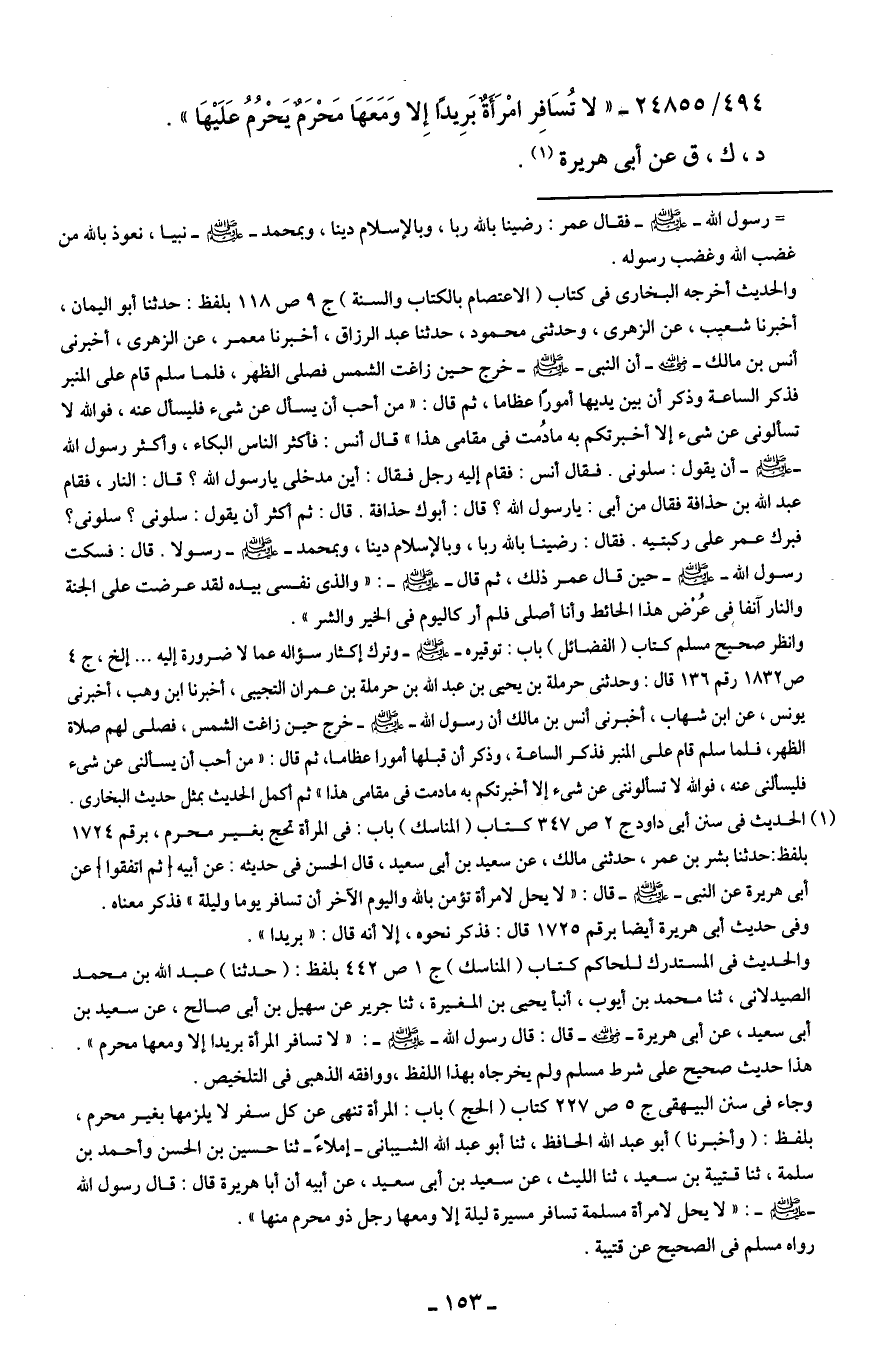 ٢٤٨٥٥/٤٩٤ ـ « لا تُسَافِرِ امْرَأَةٌ بَرِيدًا إِلا وَمَعَهَا مَحْرَمٌ يَحْرُمُ عَلَيْهَا » .
د ، ك ، ق عن أبى هريرة (١) .
= رسول الله ـ ﷺ ـ فقال عمر : رضينا بالله ربا ، وبالإسلام دينا ، وبمحمد ـ ﷺ ـ نبيا ، نعوذ بالله من
غضب الله وغضب رسوله .
والحديث أخرجه البخارى فى كتاب ( الاعتصام بالكتاب والسنة ) ج ٩ ص ١١٨ بلفظ : حدثنا أبو اليمان ،
أخبرنا شعيب ، عن الزهرى ، وحدثنى محمود ، حدثنا عبد الرزاق ، أخبرنا معمر ، عن الزهرى ، أخبرنى
أنس بن مالك ـ رضي الله عنه ـ أن النبى ـ ﷺ ـ خرج حين زاغت الشمس فصلى الظهر ، فلما سلم قام على المنبر
فذكر الساعة وذكر أن بين يديها أمورًا عظاما ، ثم قال : « من أحب أن يسأل عن شىء فليسأل عنه ، فوالله لا
تسألونى عن شىء إلا أخبرتكم به مادُمت فى مقامى هذا » قال أنس : فأكثر الناس البكاء ، وأكثر رسول الله
ـ ﷺ ـ أن يقول : سلونى . فقال أنس : فقام إليه رجل فقال : أين مدخلى يارسول الله ؟ قال : النار ، فقام
عبد الله بن حذافة فقال من أبى : يارسول الله ؟ قال : أبوك حذافة . قال : ثم أكثر أن يقول : سلونى ؟ سلونى؟
فبرك عمر على ركبتيه . فقال : رضينا بالله ربا ، وبالإسلام دينا ، وبمحمد ـ ﷺ ـ رسولا . قال : فسكت
رسول الله ـ ﷺ ـ حين قال عمر ذلك ، ثم قال ـ ﷺ ـ : « والذى نفسى بيده لقد عرضت على الجنة
والنار آنفا فى عُرْض هذا الحائط وأنا أصلى فلم أر كاليوم فى الخير والشر » .
وانظر صحيح مسلم كتاب ( الفضائل ) باب : توقيره ـ ﷺ ـ وترك إكثار سؤاله عما لا ضرورة إليه ... إلخ ، ج ٤
ص١٨٣٢ رقم ١٣٦ قال : وحدثنى حرملة بن يحيى بن عبد الله بن حرملة بن عمران التجيبى ، أخبرنا ابن وهب ، أخبرنى
يونس ، عن ابن شهاب ، أخبرنى أنس بن مالك أن رسول الله ـ ﷺ ـ خرج حين زاغت الشمس ، فصلى لهم صلاة
الظهر، فلما سلم قام على المنبر فذكر الساعة ، وذكر أن قبلها أمورا عظاما، ثم قال : « من أحب أن يسألنى عن شىء
فليسألنى عنه ، فوالله لا تسألوننى عن شىء إلا أخبرتكم به مادمت فى مقامى هذا » ثم أكمل الحديث بمثل حديث البخارى .
(١) الحديث فى سنن أبى داود ج ٢ ص ٣٤٧ كتاب ( المناسك ) باب : فى المرأة تحج بغير محرم ، برقم ١٧٢٤
بلفظ:حدثنا بشر بن عمر ، حدثنى مالك ، عن سعيد بن أبى سعيد ، قال الحسن فى حديثه : عن أبيه { ثم اتفقوا } عن
أبى هريرة عن النبى ـ ﷺ ـ قال : « لا يحل لامرأة تؤمن بالله واليوم الآخر أن تسافر يوما وليلة » فذكر معناه .
وفى حديث أبى هريرة أيضا برقم ١٧٢٥ قال : فذكر نحوه ، إلا أنه قال : « بريدا » .
والحديث فى المستدرك للحاكم كتاب ( المناسك ) ج ١ ص ٤٤٢ بلفظ : ( حدثنا ) عبد الله بن محمد
الصيدلانى ، ثنا محمد بن أيوب ، أنبأ يحيى بن المغيرة ، ثنا جرير عن سهيل بن أبى صالح ، عن سعيد بن
أبى سعيد ، عن أبى هريرة ـ رضي الله عنه ـ قال : قال رسول الله ـ ﷺ ـ : « لا تسافر المرأة بريدا إلا ومعها محرم » .
هذا حديث صحيح على شرط مسلم ولم يخرجاه بهذا اللفظ ،ووافقه الذهبى فى التلخيص .
وجاء فى سنن البيهقى ج ٥ ص ٢٢٧ كتاب ( الحج ) باب : المرأة تنهى عن كل سفر لا يلزمها بغير محرم ،
بلفظ : ( وأخبرنا ) أبو عبد الله الحافظ ، ثنا أبو عبد الله الشيبانى ـ إملاءً ـ ثنا حسين بن الحسن وأحمد بن
سلمة ، ثنا قتيبة بن سعيد ، ثنا الليث ، عن سعيد بن أبى سعيد ، عن أبيه أن أبا هريرة قال : قال رسول الله
ـ ﷺ ـ : « لا يحل لامرأة مسلمة تسافر مسيرة ليلة إلا ومعها رجل ذو محرم منها » .
رواه مسلم فى الصحيح عن قتيبة .
ـ ١٥٣ ـ